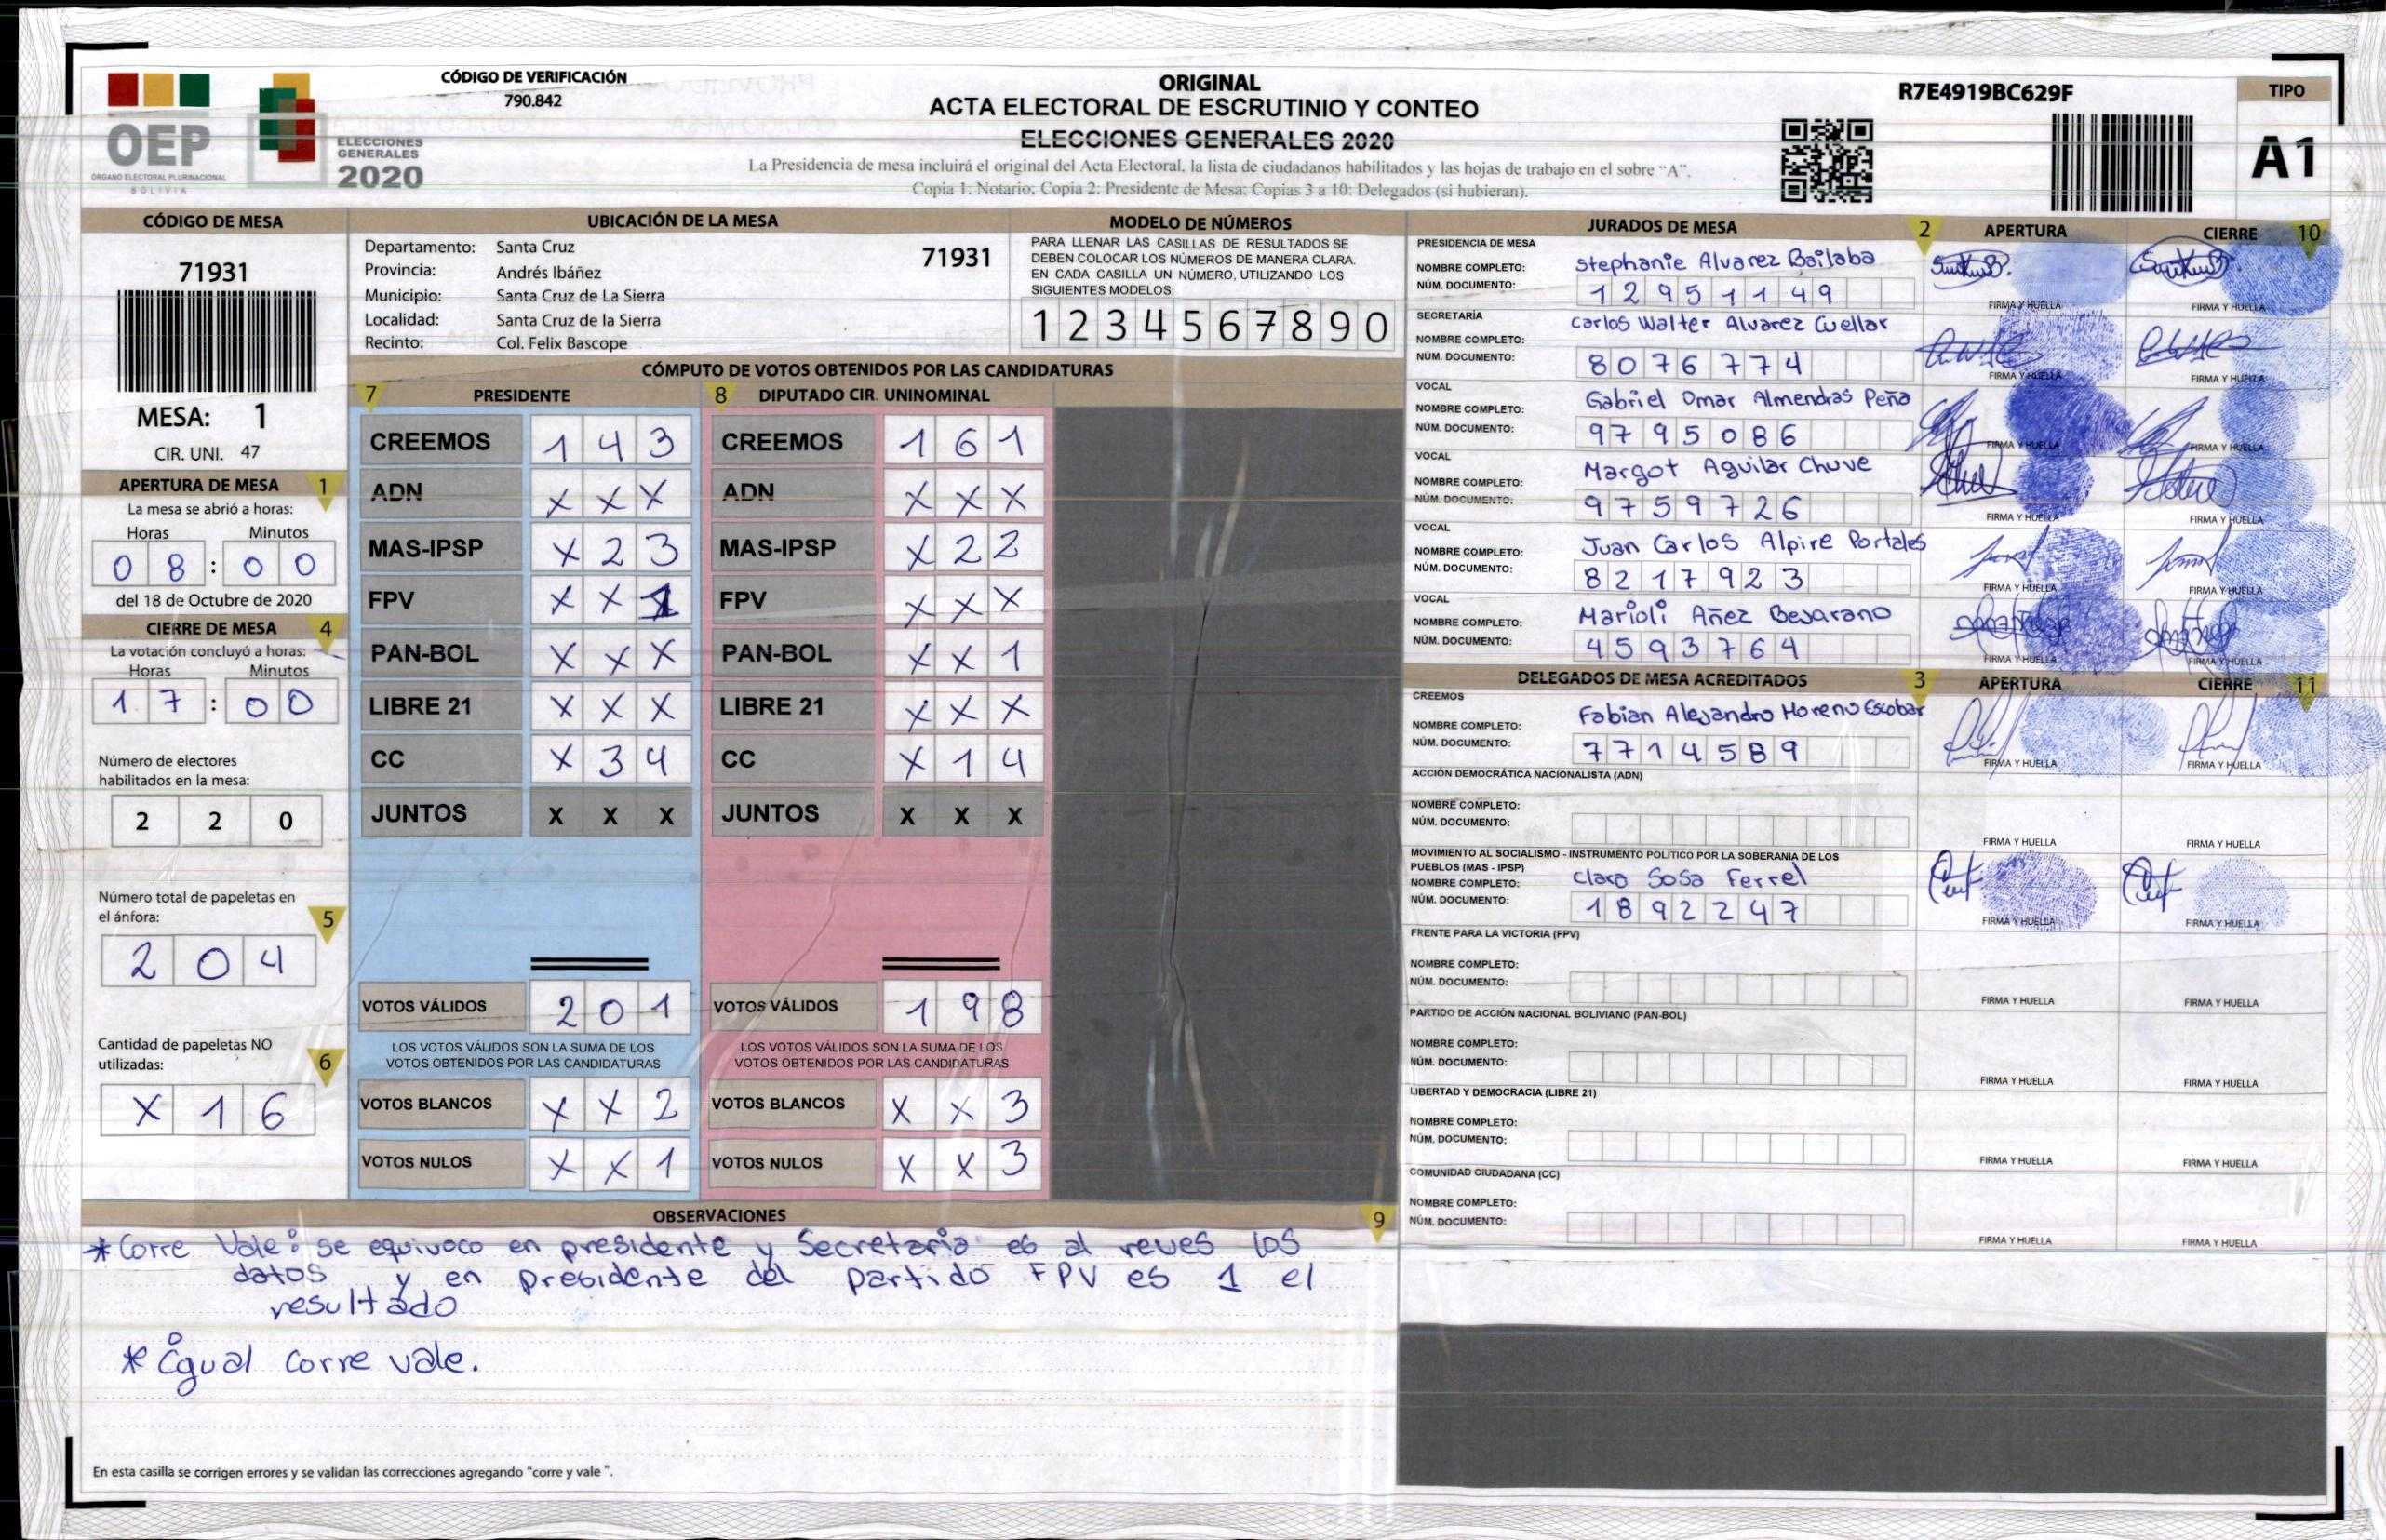 CÓDIGO DE VERIFICACIÓN
790.842
OEP
ÓRGANO ELECTORAL PLURINACIONAL
BOLIVIA
ELECCIONES
GENERALES
2020
ORIGINAL
ACTA ELECTORAL DE ESCRUTINIO Y CONTEO
ELECCIONES GENERALES 2020
La Presidencia de mesa incluirá el original del Acta Electoral, la lista de ciudadanos habilitados y las hojas de trabajo en el sobre “A”.
Copia 1: Notario; Copia 2: Presidente de Mesa; Copias 3 a 10: Delegados (si hubieran).
R7E4919BC629F
TIPO
A1
CÓDIGO DE MESA
71931
MESA: 1
CIR. UNI. 47
APERTURA DE MESA 1
La mesa se abrió a horas:
Horas Minutos
0 8 : 0 0
del 18 de Octubre de 2020
CIERRE DE MESA 4
La votación concluyó a horas:
Horas Minutos
1 7 : 0 0
Número de electores
habilitados en la mesa:
2 2 0
Número total de papeletas en
el ánfora: 5
2 0 4
Cantidad de papeletas NO
utilizadas: 6
X 1 6
UBICACIÓN DE LA MESA
Departamento: Santa Cruz 71931
Provincia: Andrés Ibáñez
Municipio: Santa Cruz de La Sierra
Localidad: Santa Cruz de la Sierra
Recinto: Col. Felix Bascope
MODELO DE NÚMEROS
PARA LLENAR LAS CASILLAS DE RESULTADOS SE
DEBEN COLOCAR LOS NÚMEROS DE MANERA CLARA.
EN CADA CASILLA UN NÚMERO, UTILIZANDO LOS
SIGUIENTES MODELOS:
1 2 3 4 5 6 7 8 9 0
CÓMPUTO DE VOTOS OBTENIDOS POR LAS CANDIDATURAS
7 PRESIDENTE 8 DIPUTADO CIR. UNINOMINAL
CREEMOS 1 4 3 CREEMOS 1 6 1
ADN X X X ADN X X X
MAS-IPSP X 2 3 MAS-IPSP X 2 2
FPV X X 1 FPV X X X
PAN-BOL X X X PAN-BOL X X 1
LIBRE 21 X X X LIBRE 21 X X X
CC X 3 4 CC X 1 4
JUNTOS X X X JUNTOS X X X
VOTOS VÁLIDOS 2 0 1 VOTOS VÁLIDOS 1 9 8
LOS VOTOS VÁLIDOS SON LA SUMA DE LOS LOS VOTOS VÁLIDOS SON LA SUMA DE LOS
VOTOS OBTENIDOS POR LAS CANDIDATURAS VOTOS OBTENIDOS POR LAS CANDIDATURAS
VOTOS BLANCOS X X 2 VOTOS BLANCOS X X 3
VOTOS NULOS X X 1 VOTOS NULOS X X 3
OBSERVACIONES 9
* Corre Vale: se equivoco en presidente y Secretaria es al reves los
datos y en presidente del partido FPV es 1 el
resultado
* igual corre vale.
En esta casilla se corrigen errores y se validan las correcciones agregando "corre y vale ".
JURADOS DE MESA 2 APERTURA CIERRE 10
PRESIDENCIA DE MESA
NOMBRE COMPLETO: Stephanie Alvarez Bailaba
NÚM. DOCUMENTO: 1 2 9 5 1 1 4 9
FIRMA Y HUELLA FIRMA Y HUELLA
SECRETARÍA
NOMBRE COMPLETO: Carlos Walter Alvarez Cuellar
NÚM. DOCUMENTO: 8 0 7 6 7 7 4
FIRMA Y HUELLA FIRMA Y HUELLA
VOCAL
NOMBRE COMPLETO: Gabriel Omar Almendras Peña
NÚM. DOCUMENTO: 9 7 9 5 0 8 6
FIRMA Y HUELLA FIRMA Y HUELLA
VOCAL
NOMBRE COMPLETO: Margot Aguilar Chuve
NÚM. DOCUMENTO: 9 7 5 9 7 2 6
FIRMA Y HUELLA FIRMA Y HUELLA
VOCAL
NOMBRE COMPLETO: Juan Carlos Alpire Portales
NÚM. DOCUMENTO: 8 2 1 7 9 2 3
FIRMA Y HUELLA FIRMA Y HUELLA
VOCAL
NOMBRE COMPLETO: Marioli Añez Bejarano
NÚM. DOCUMENTO: 4 5 9 3 7 6 4
FIRMA Y HUELLA FIRMA Y HUELLA
DELEGADOS DE MESA ACREDITADOS 3 APERTURA CIERRE 11
CREEMOS
NOMBRE COMPLETO: Fabian Alejandro Moreno Escobar
NÚM. DOCUMENTO: 7 7 1 4 5 8 9
FIRMA Y HUELLA FIRMA Y HUELLA
ACCIÓN DEMOCRÁTICA NACIONALISTA (ADN)
NOMBRE COMPLETO:
NÚM. DOCUMENTO:
FIRMA Y HUELLA FIRMA Y HUELLA
MOVIMIENTO AL SOCIALISMO - INSTRUMENTO POLÍTICO POR LA SOBERANIA DE LOS
PUEBLOS (MAS - IPSP)
NOMBRE COMPLETO: Clara Sosa Ferrel
NÚM. DOCUMENTO: 1 8 9 2 2 4 7
FIRMA Y HUELLA FIRMA Y HUELLA
FRENTE PARA LA VICTORIA (FPV)
NOMBRE COMPLETO:
NÚM. DOCUMENTO:
FIRMA Y HUELLA FIRMA Y HUELLA
PARTIDO DE ACCIÓN NACIONAL BOLIVIANO (PAN-BOL)
NOMBRE COMPLETO:
NÚM. DOCUMENTO:
FIRMA Y HUELLA FIRMA Y HUELLA
LIBERTAD Y DEMOCRACIA (LIBRE 21)
NOMBRE COMPLETO:
NÚM. DOCUMENTO:
FIRMA Y HUELLA FIRMA Y HUELLA
COMUNIDAD CIUDADANA (CC)
NOMBRE COMPLETO:
NÚM. DOCUMENTO:
FIRMA Y HUELLA FIRMA Y HUELLA